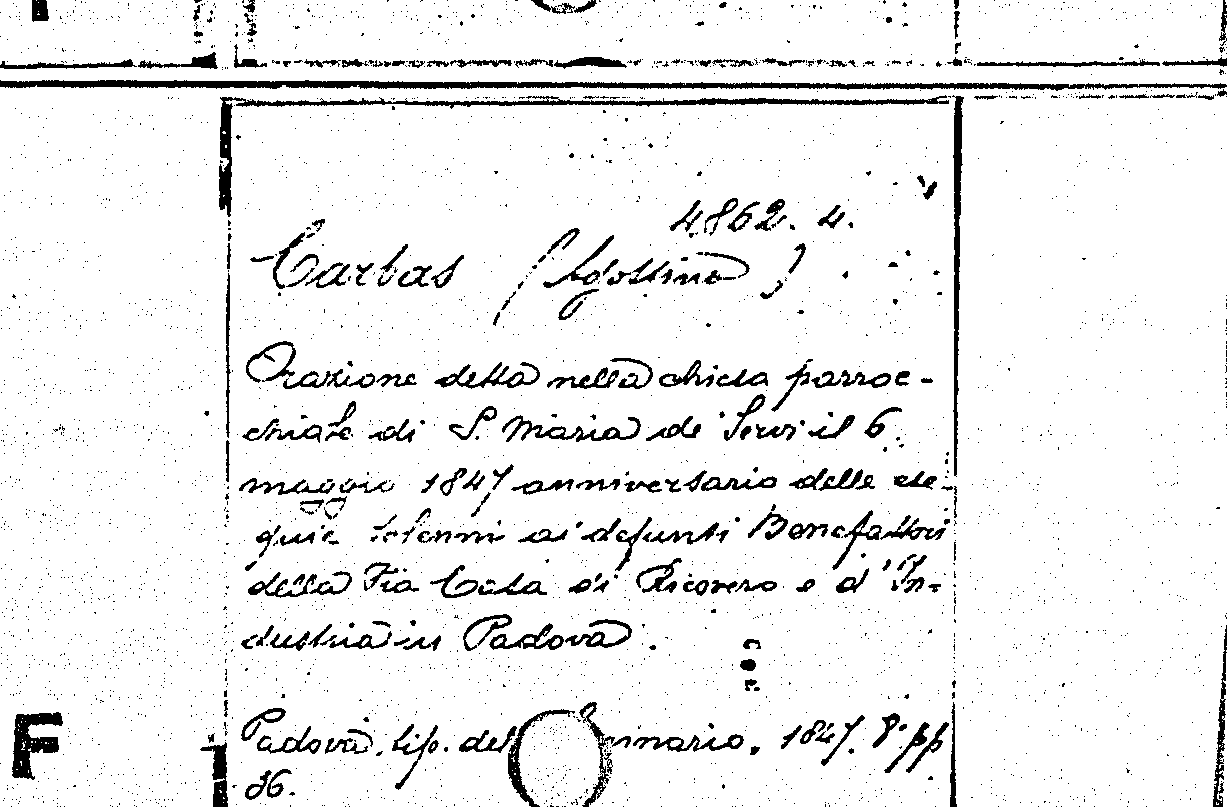 4862. 4.
Carbas (Agostino)
Orazione detta nella chiesa parroc-
chiale di S. Maria de' Servi il 6
maggio 1847 anniversario delle ese-
quie solenni ai defunti Benefattori
della Pia Casa di Ricovero e d'In-
dustria in Padova.
Padova, tip. del nnario, 1847. 8° pp
36.
F